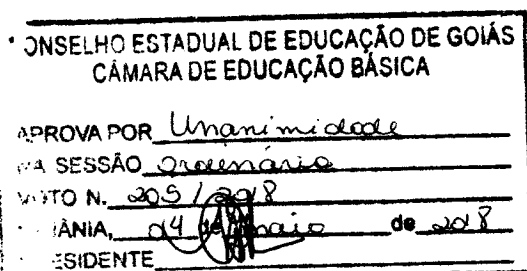 ONSELHO ESTADUAL DE EDUCAÇÃO DE GOIÁS
CÂMARA DE EDUCAÇÃO BÁSICA
APROVA POR Unanimidade
NA SESSÃO Ordenária
VOTO N. 205 / 2018
IÂNIA, 04 de maio de 2018
ESIDENTE